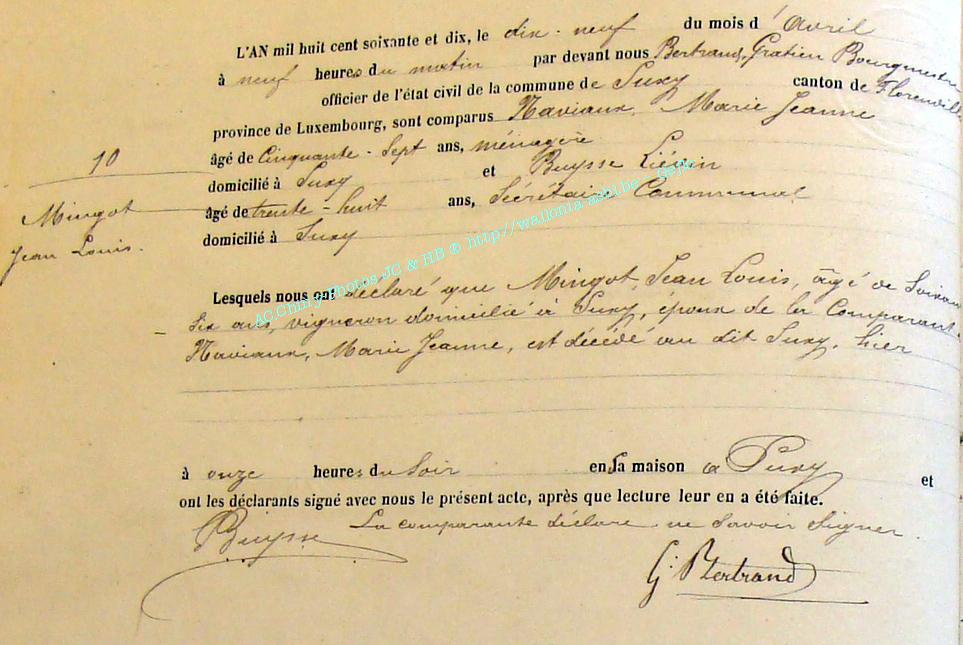 L'AN mil huit cent soixante et dix, le dix-neuf du mois d'Avril
à neuf heures du matin par devant nous Bertrand, Gratien Bourgmestre
officier de l'état civil de la commune de Suxy canton de Florenville
province de Luxembourg, sont comparus Naviaux, Marie Jeanne
âgé de Cinquante-Sept ans, ménagère
domicilié à Suxy et Buysse Liévin
âgé de trente-huit ans, Sécrétaire Communal
domicilié à Suxy
10
Mingot
Jean Louis.
Lesquels nous ont déclaré que Mingot, Jean Louis, âgé de Soixante
Six ans, vigneron domicilié à Suxy, époux de la Comparante
Naviaux, Marie Jeanne, est décédé au dit Suxy, hier
à onze heures du Soir en Sa maison à Suxy et
ont les déclarants signé avec nous le présent acte, après que lecture leur en a été faite.
La comparante déclare ne Savoir Signer.
Buysse
G. Bertrand
AC.Chiny-Photos JC & HB @ http://wallonia-asbl.be - Geja